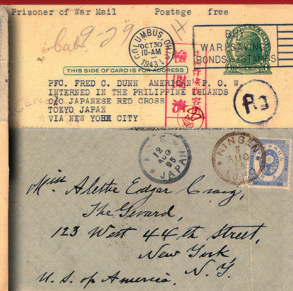 Prisoner of War Mail Postage free
COLUMBUS, OHIO
OCT 30
10-AM
1943
BUY
WAR SAVINGS
BONDS & STAMPS
THIS SIDE OF CARD IS FOR ADDRESS
PFC. FRED C. DUNN AMERICAN P. O. W.
INTERNED IN THE PHILIPPINE ISLANDS
C/O JAPANESE RED CROSS
TOKYO JAPAN
VIA NEW YORK CITY
JAPAN
NINGPO
AUG
Miss Alette Edgar Craig,
The Gerard,
123 West 44th Street,
New York,
N. Y.
U. S. of America.